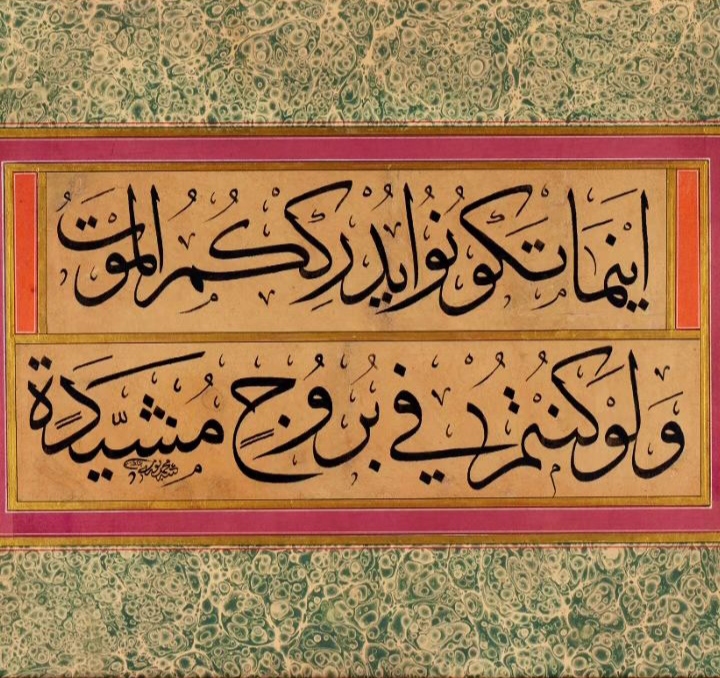 اَيْنَمَا تَكُونُوا يُدْرِكْكُمُ الْمَوْتُ
وَلَوْ كُنْتُمْ فِي بُرُوجٍ مُشَيَّدَةٍ